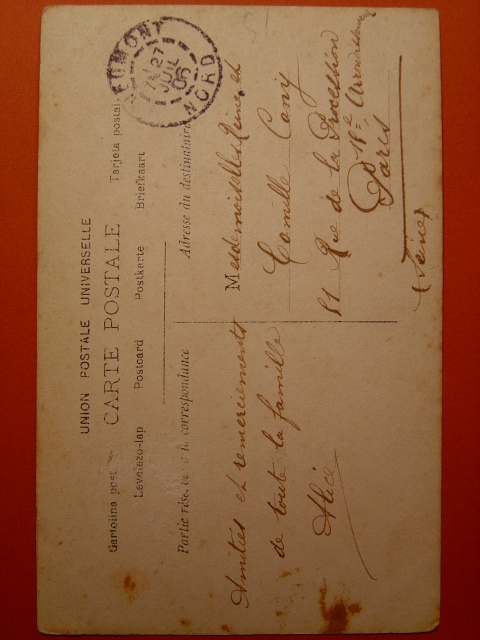 UNION POSTALE UNIVERSELLE
CARTE POSTALE
Cartolina post Tarjeta postal
Levelezo-lap Postcard Postkarte Briefkaart
Partie rése à la correspondance
Adresse du destinataire
JEUMONT
27
JUIL
06
NORD
Amitiés et remerciements
de toute la famille
Alice
Mesdemoiselles Reine et
Camille Cany
51 Rue de la Procession
Paris
(Seine)